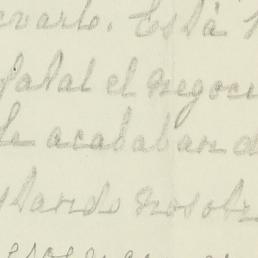 evarlo. Está
fatal el negoci
le acababan d
stando nosotr